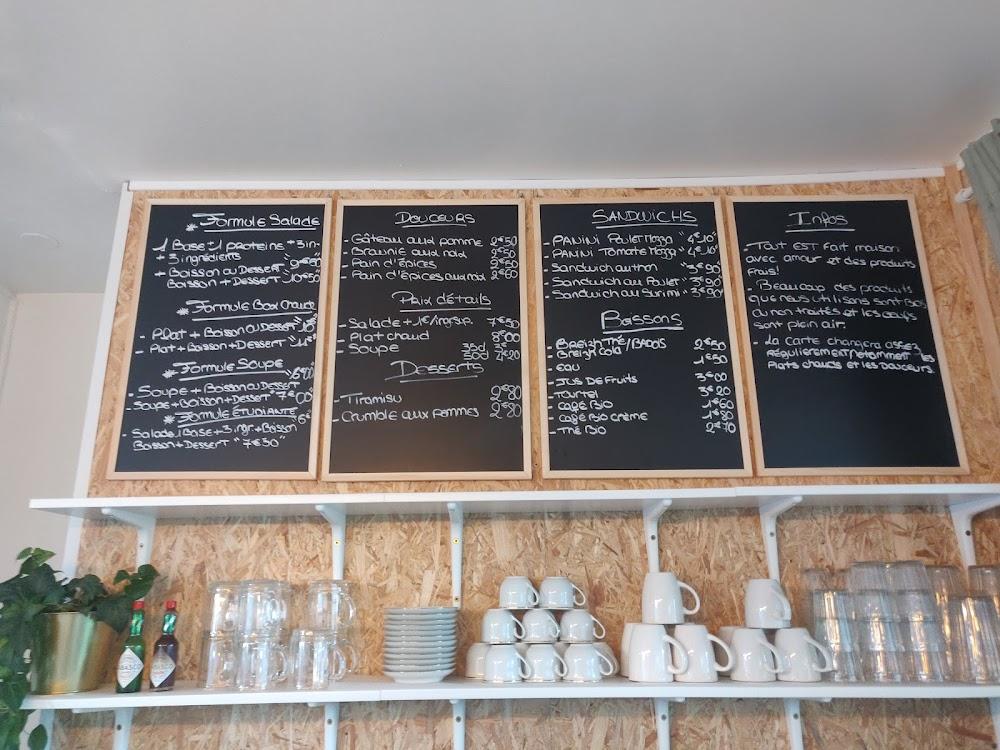 * Formule Salade
1 Base + 1 proteine + 3 in-
+ 3 ingrédients
+ Boisson ou Dessert "9€50"
Boisson + Dessert "10€50"
* Formule Box Chaude
- Plat + Boisson ou Dessert "10€"
- Plat + Boisson + Dessert "11€"
* Formule Soupe
- Soupe + Boisson ou Dessert "6€00"
- Soupe + Boisson + Dessert "7€00"
* Formule Étudiante
- Salade 1 Base + 3 ingr + Boisson "6€"
Boisson + Dessert "7€30"
Douceurs
- Gâteau aux pomme 2€50
- Brownie aux noix 2€50
- Pain d'épices 2€50
- Pain d'épices aux noix 2€60
Prix détails
- Salade + 1€/ingr sup. 7€50
- Plat chaud 8€00
- Soupe
Desserts
- Tiramisu 2€80
- Crumble aux pommes 2€80
Sandwichs
- Panini Poulet Mozza "4€10"
- Panini Tomate Mozza "4€10"
- Sandwich au thon "3€90"
- Sandwich au Poulet "3€90"
- Sandwich au Surimi "3€90"
Boissons
- Breizh Thé/Badois 2€50
- Breizh Cola
- eau 1€50
- Jus De Fruits 3€00
- Tourtel 3€20
- Café Bio 1€60
- Café Bio crème 1€80
- Thé Bio 2€70
Infos
- Tout EST fait maison
avec amour et des produits
frais!
- Beaucoup des produits
que nous utilisons sont Bio
ou non traités et les oeufs
sont plein air.
- La carte changera assez
régulièrement notamment les
Plats chauds et les Douceurs
TABASCO